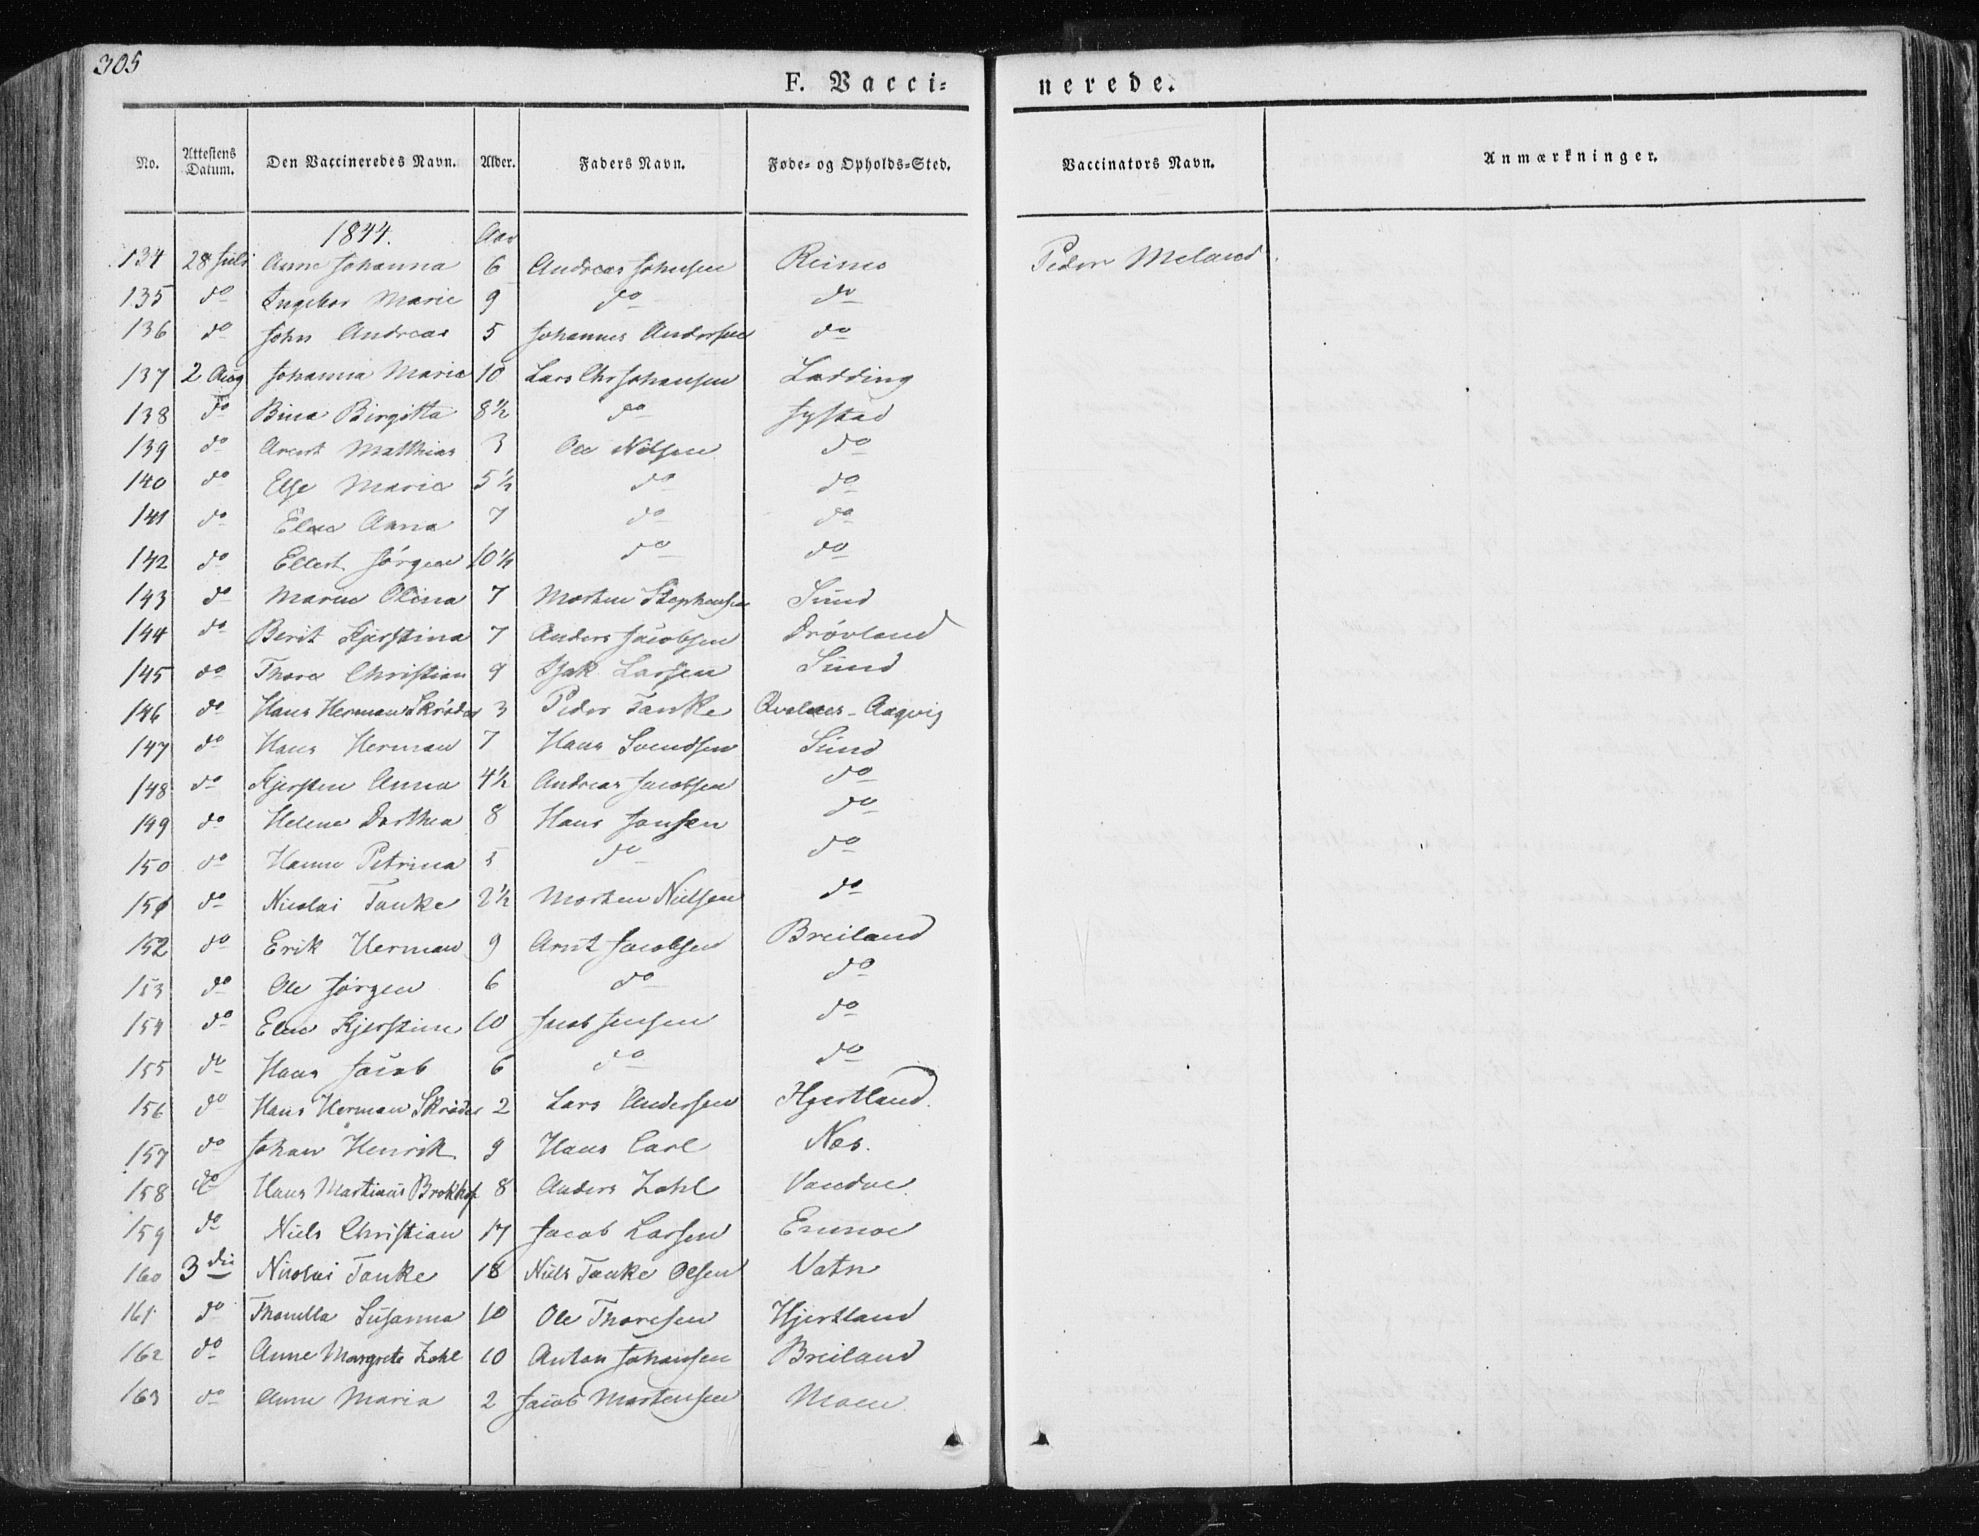 305
F. Vacci-
nerede.
No. Attestens Datum. Den Vaccineredes Navn. Alder. Faders Navn. Føde- og Opholds-Sted. Vaccinators Navn. Anmærkninger.
1844. Aar
134 28 Juli Anne Johanna 6 Andreas Johnsen Reimo Peder Meland.
135 do Ingebor Marie 9 do do
136 do John Andreas 5 Johannes Andersen do
137 2 Aug Johanna Maria 10 Lars Chr Johansen Ladding
138 do Bina Birgitta 8½ do Systad
139 do Arent Matthias 3 Ole Nilsen do
140 do Else Maria 5½ do do
141 do Elen Anna 7 do do
142 do Ellert Jørgen 10½ do do
143 do Maren Olina 7 Morten Stephensen Sund
144 do Berit Kjerstina 7 Anders Jacobsen Drøvland
145 do Thore Christian 9 Isak Larsen Sund
146 do Hans Herman Skrøder 3 Peder Tanke Qvalnes - Aagvig
147 do Hans Herman 7 Hans Svendsen Sund
148 do Kjersten Anna 4½ Andreas Jacobsen do
149 do Helene Dorthea 8 Hans Jonsen do
150 do Hanne Petrina 5 do do
151 do Nicolai Tanke 2½ Morten Nielsen do
152 do Erik Herman 9 Arnt Jacobsen Breiland
153 do Ole Jørgen 6 do do
154 do Elen Kjerstine 10 Jacob Jensen do
155 do Hans Jacob 6 do do
156 do Hans Herman Skrøder 2 Lars Andersen Hjertland.
157 do Johan Henrik 9 Hans Carl Nes.
158 do Hans Martinus Brokhof 8 Anders Zahl Vandve
159 do Niels Christian 17 Jacob Larsen
160 3 die Nicolai Tanke 18 Niels Tanke Olsen Vatn
161 do Thomilla Susanna 10 Ole Thoresen Hjertland
162 do Anne Margrete Zahl 10 Anton Johansen Breiland
163 do Anne Maria 2 Jacob Mortensen Moen